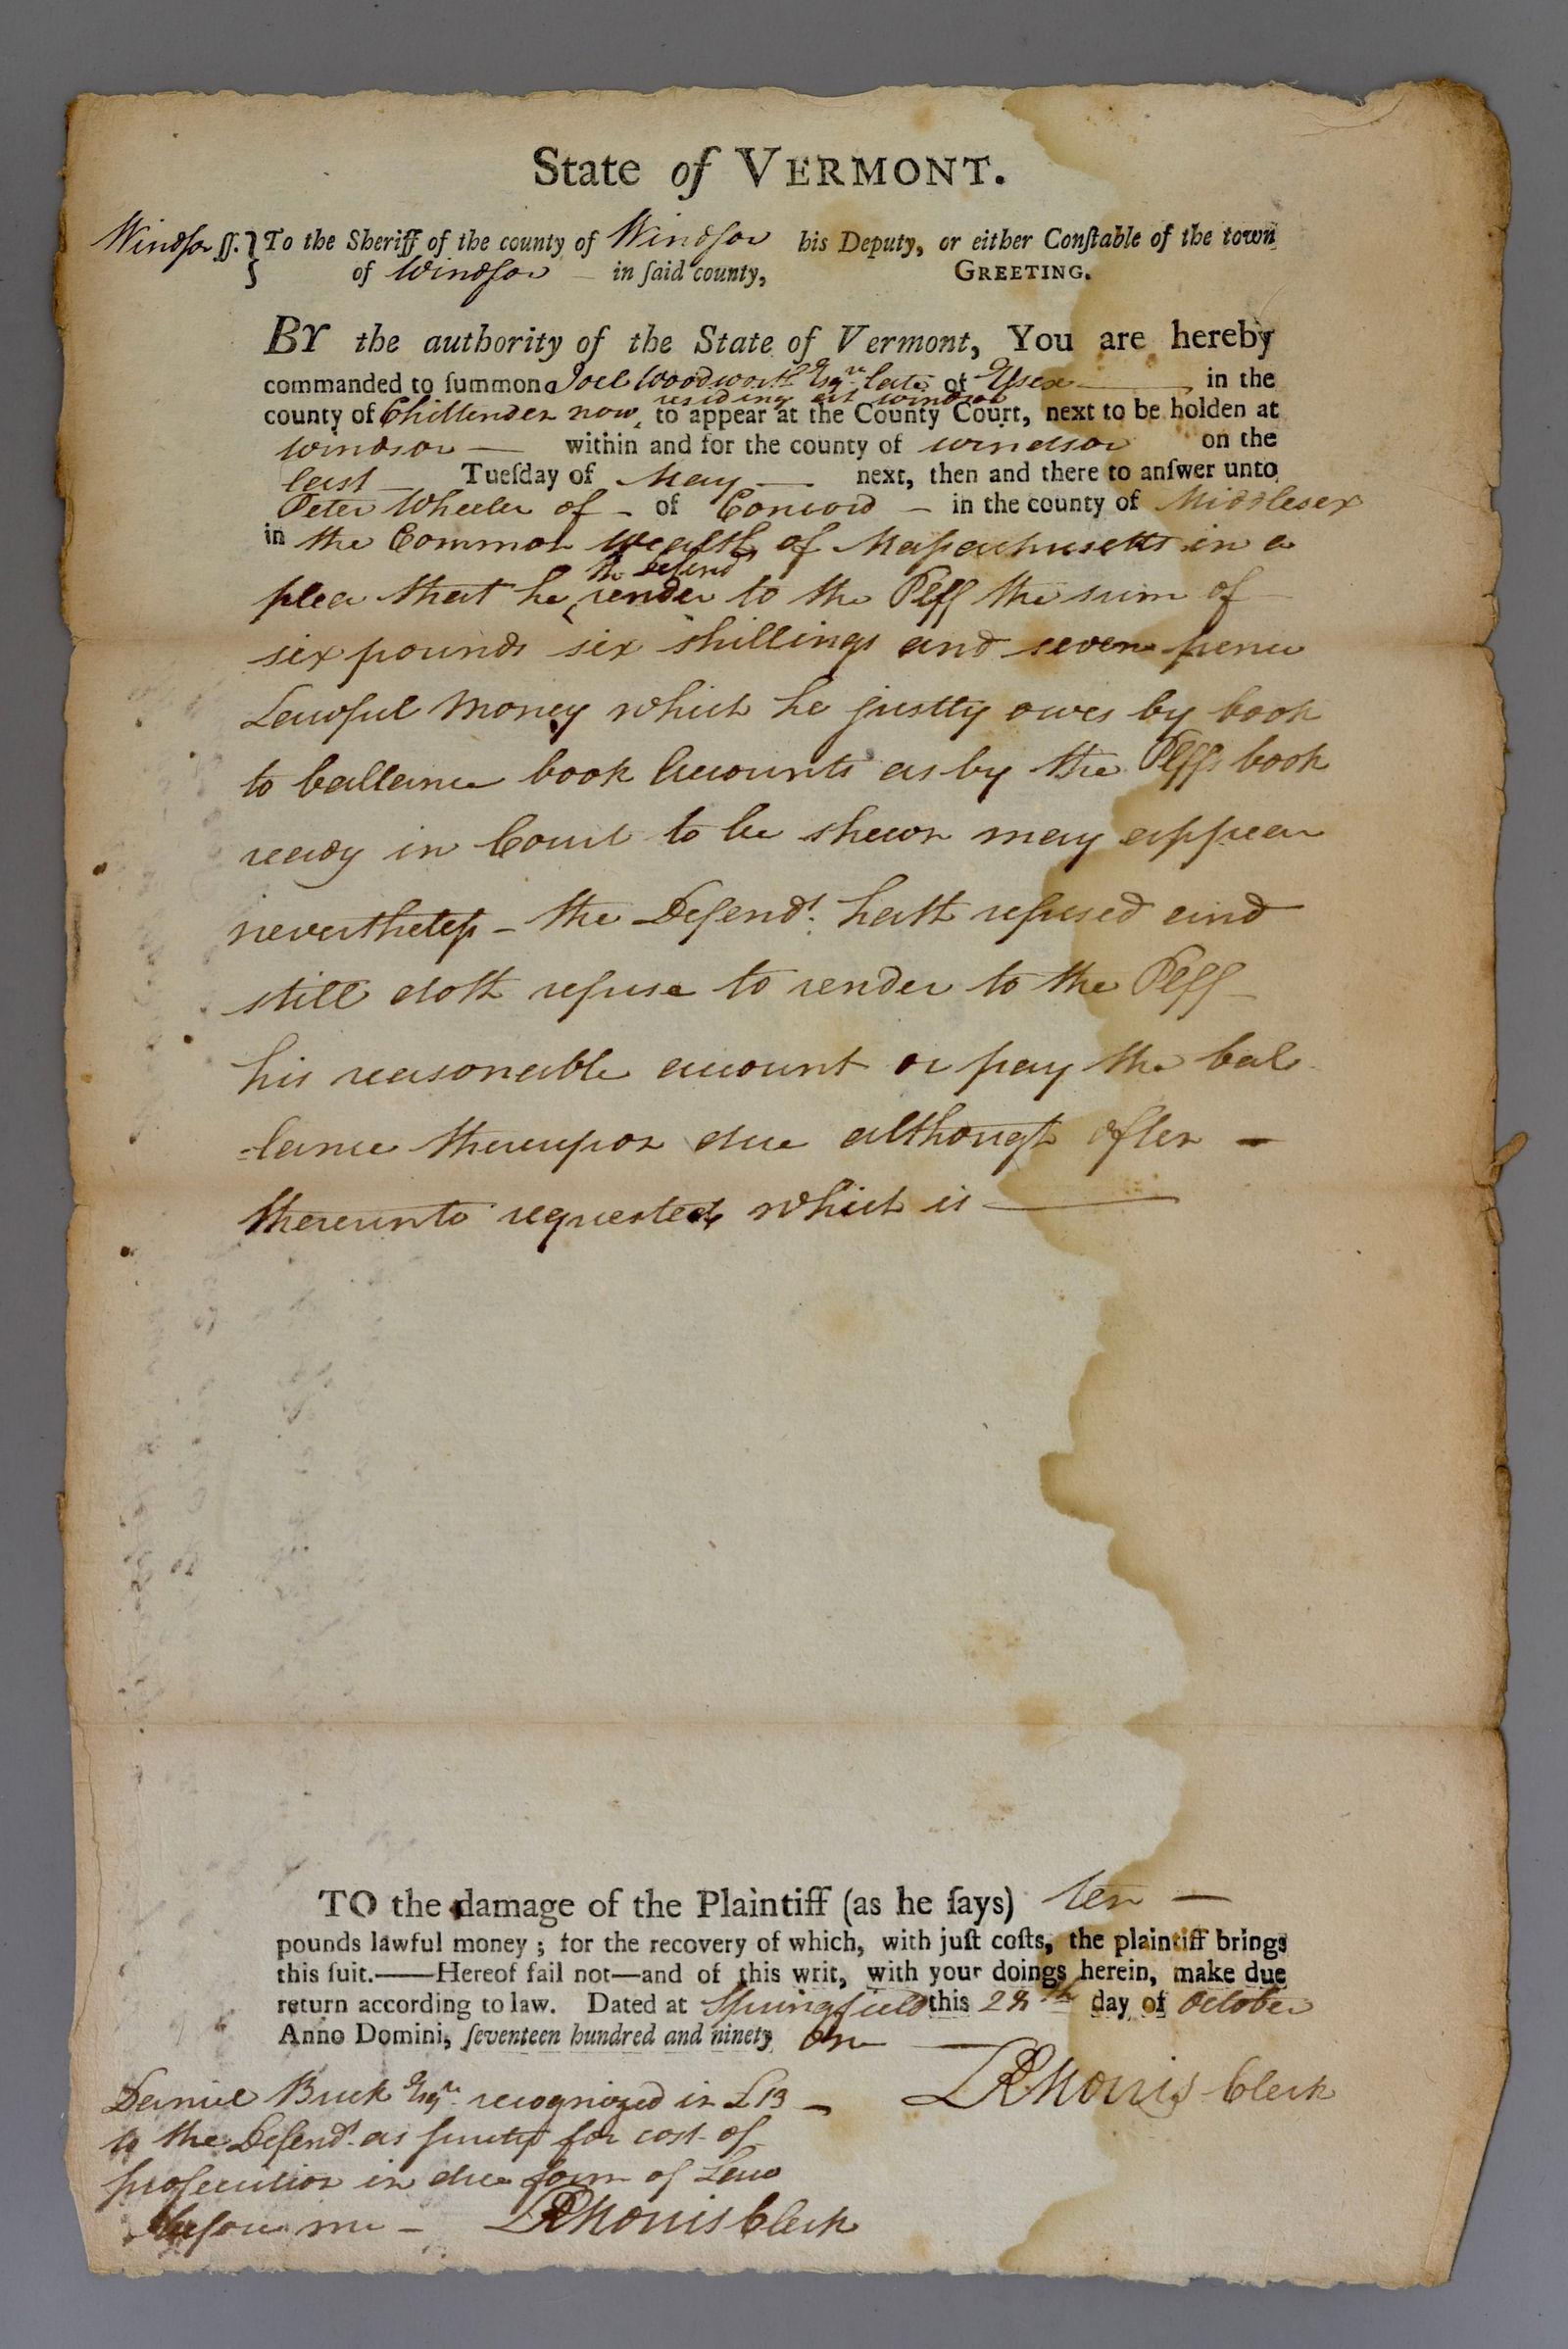 State of VERMONT.
Windſor ſſ. } To the Sheriff of the county of Windſor his Deputy, or either Conſtable of the town
of Windſor — in ſaid county, GREETING.
BY the authority of the State of Vermont, You are hereby
commanded to ſummon Joel Woodworth Esqr. late of Essex —— in the
residing at windsor
county of Chittenden now ‸ to appear at the County Court, next to be holden at
windsor — within and for the county of windsor on the
last — Tueſday of May — next, then and there to anſwer unto
Peter Wheeler of – of Concord – in the county of Middlesex
in the Common wealth of Maſsachusetts in a
the Defend
plea that he ‸ render to the Plff the sum of —
six pounds six shillings and seven pence
Lawful Money which he justly owes by book
to ballance book Accounts as by the Plffs book
ready in Court to be shewn may appear
nevertheleſs – the Defendt. hath refused and
still doth refuse to render to the Plff –
his reasonable account or pay the bal-
-lance thereupon due although often –
thereunto requested which is ——
TO the damage of the Plaintiff (as he ſays) ten —
pounds lawful money ; for the recovery of which, with juſt coſts, the plaintiff brings
this ſuit.——Hereof fail not—and of this writ, with your doings herein, make due
return according to law. Dated at Springfield this 28th day of October
Anno Domini, ſeventeen hundred and ninety one —
LR Morris Clerk
Daniel Buck Esqr. recognized in £13 –
to the Defendt. as surety for cost of
proſecution in due form of Law
before me – LR Morris Clerk